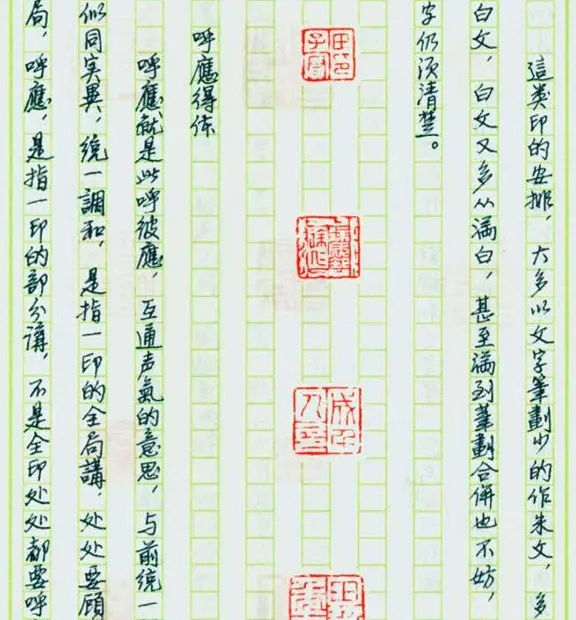 這类印的安排，大多以文字筆劃少的作朱文，多
白文，白文又多从滿白，甚至滿到筆劃合併也不妨，
字仍须清楚。
呼應得体
呼應就是此呼彼應，互通声氣的意思，与前统一
似同实異，统一調和，是指一印的全局講，处处要顾
局，呼應，是指一印的部分講，不是全印处处都要呼